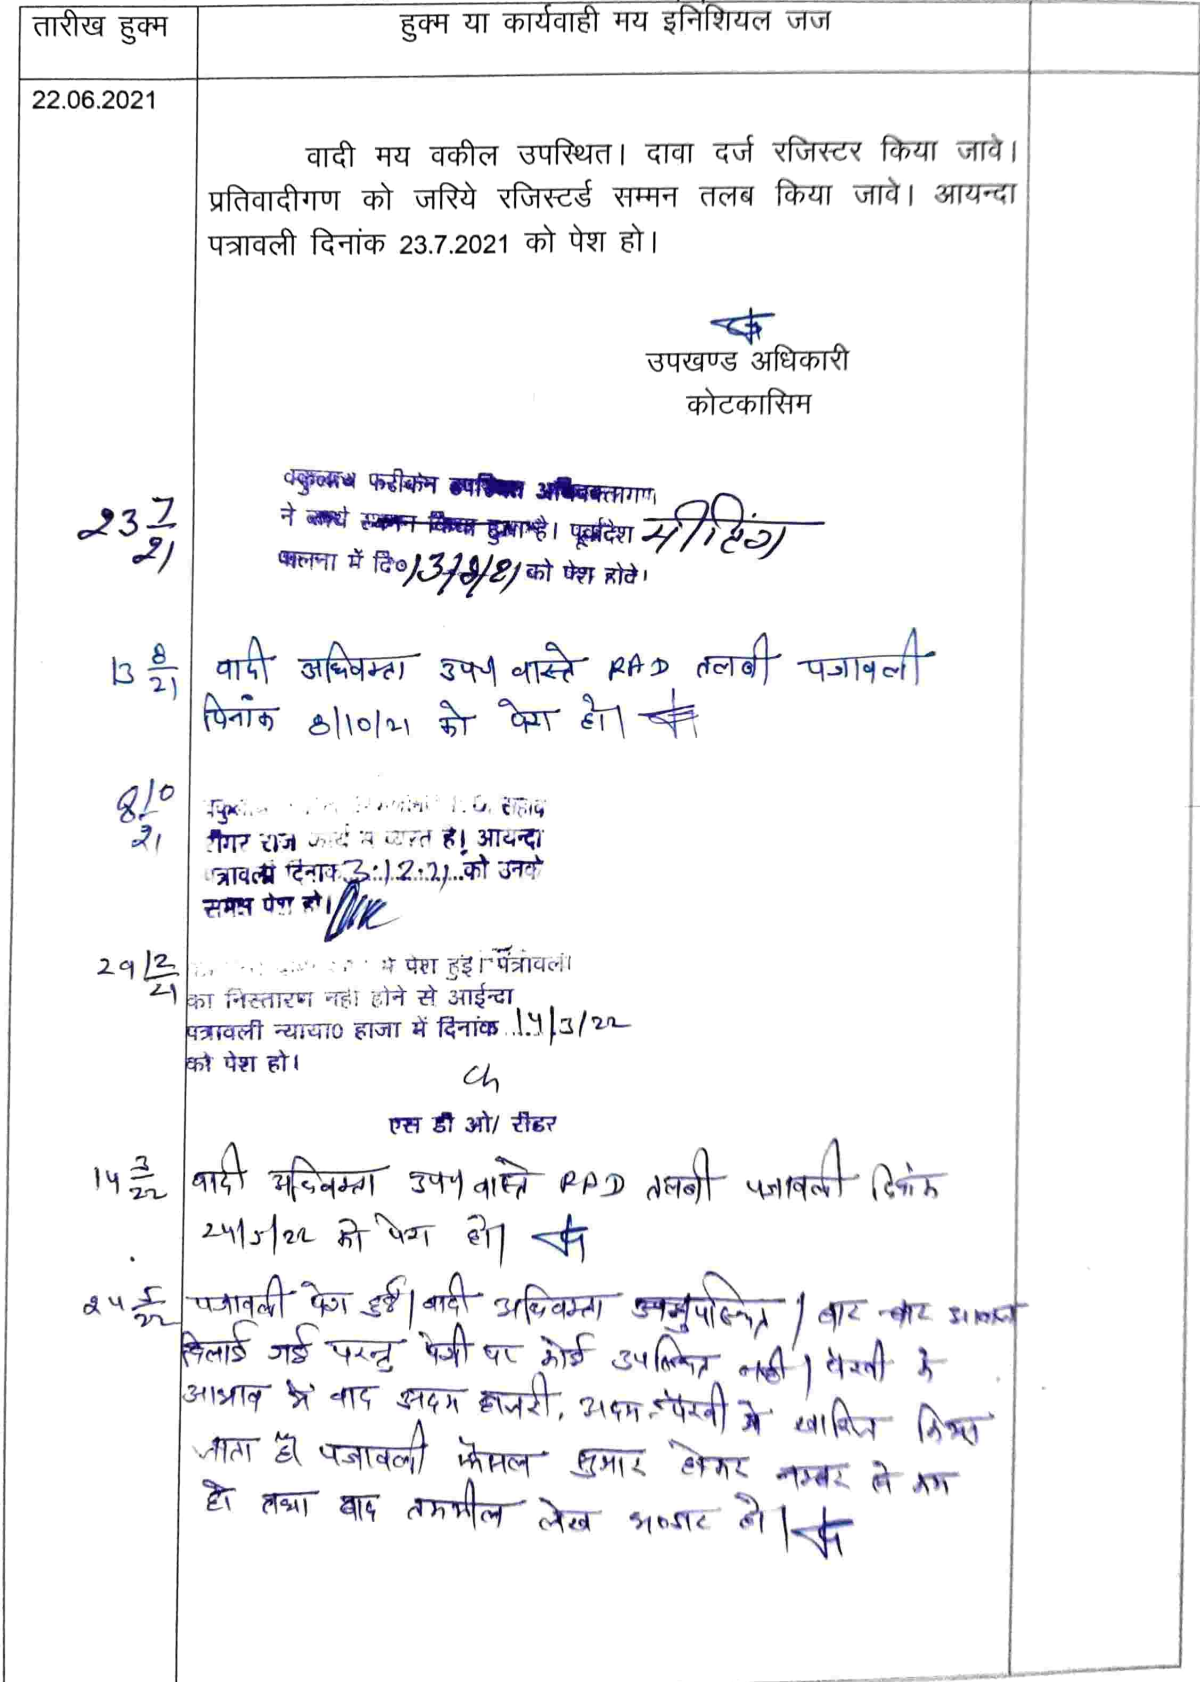 तारीख हुक्म
हुक्म या कार्यवाही मय इनिशियल जज
22.06.2021
वादी मय वकील उपस्थित। दावा दर्ज रजिस्टर किया जावे।
प्रतिवादीगण को जरिये रजिस्टर्ड सम्मन तलब किया जावे। आयन्दा
पत्रावली दिनांक 23.7.2021 को पेश हो।
उपखण्ड अधिकारी
कोटकासिम
23 7/21
फरीकेन उपस्थित अधिवक्तागण
ने कार्य स्थगन किया हुआ है। पूर्वादेश मीटिंग
पालना में दि० 13/8/21 को पेश होवे।
13 8/21 वादी अधिवक्ता उप० वास्ते RAD तलबी पत्रावली
दिनांक 8/10/21 को पेश हो।
8 10/21
राज कार्य में व्यस्त है। आयन्दा
पत्रावली दिनांक 3.12.21 को उनके
समक्ष पेश हो।
29 12/21 में पेश हुई। पत्रावली
का निस्तारण नही होने से आईन्दा
पत्रावली न्याया0 हाजा में दिनांक 14/3/22
को पेश हो।
एस डी ओ/ रीडर
14 3/22 वादी अधिवक्ता उप० वास्ते RAD तलबी पत्रावली दिनांक
24/5/22 को पेश हो।
24 5/22 पत्रावली पेश हुई। वादी अधिवक्ता अनुपस्थित। बार-बार आवाज
दिलाई गई परन्तु पेशी पर कोई उपस्थित नही। पैरवी के
अभाव में वाद अदम हाजरी, अदम पैरवी में खारिज किया
जाता है। पत्रावली फैसल सुमार होकर नम्बर से कम
हो तथा बाद तकमील लेख भण्डार हो।